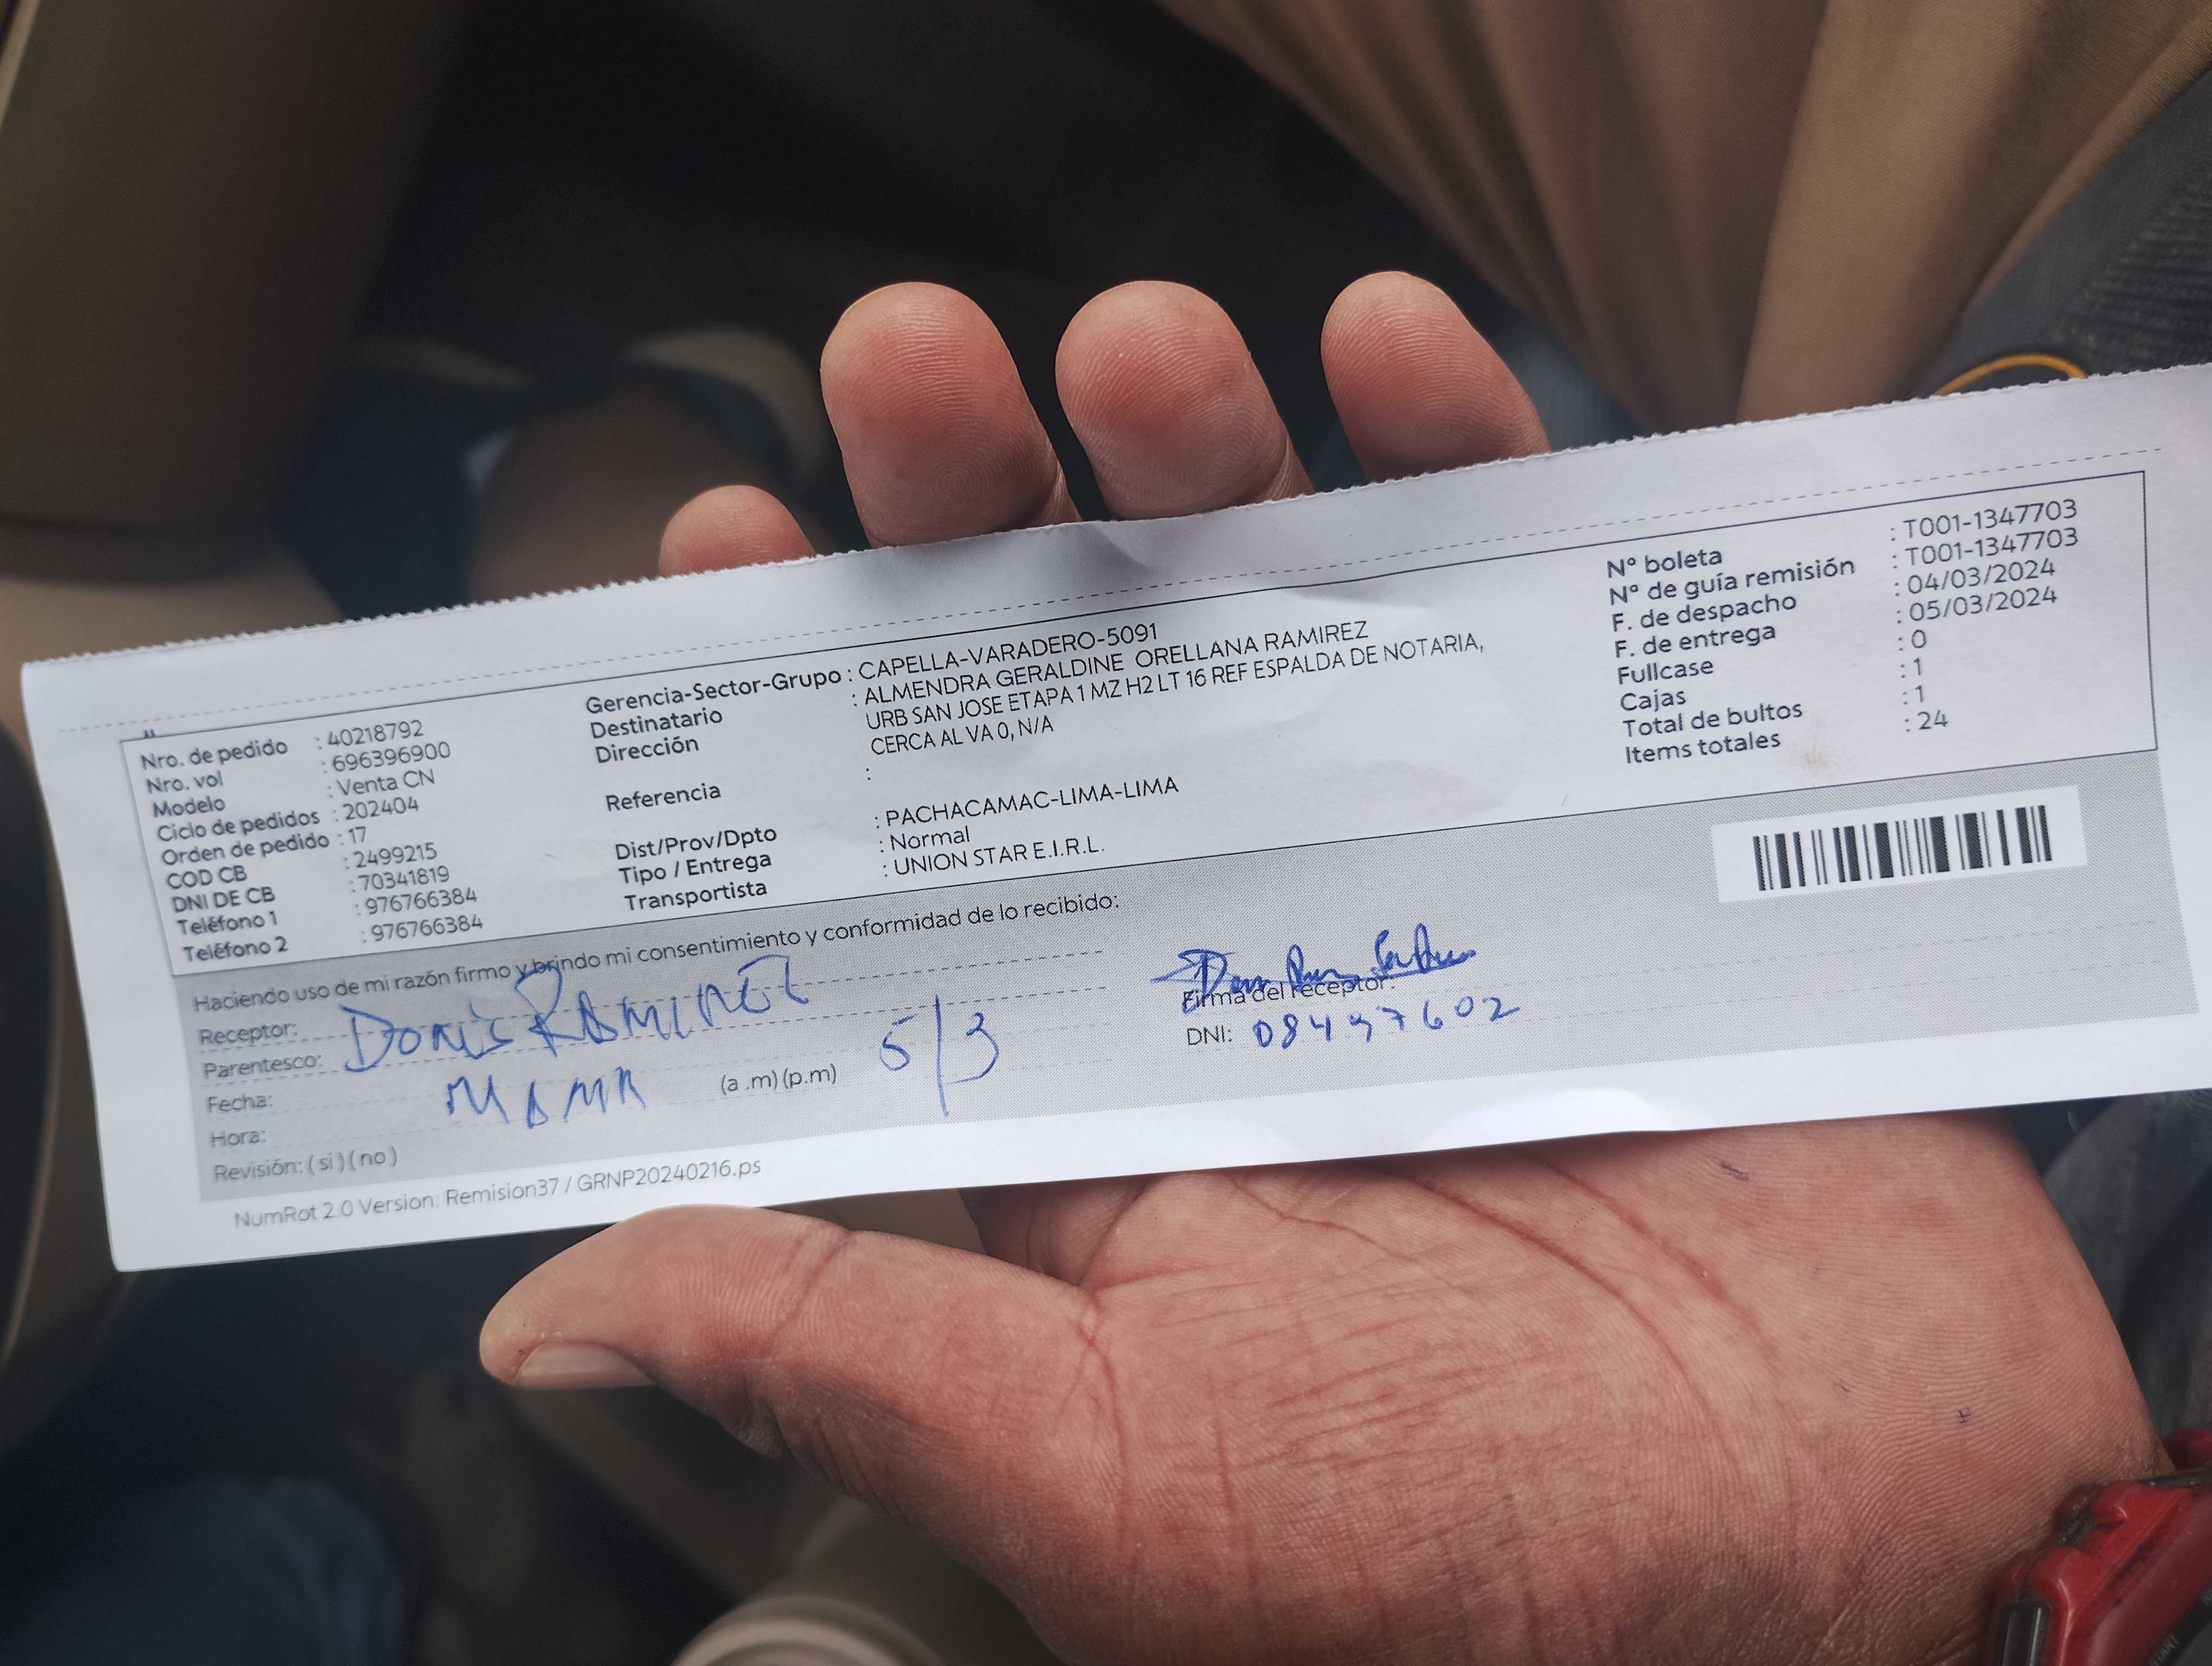 Nro. de pedido : 40218792
Nro. vol : 696396900
Modelo : Venta CN
Ciclo de pedidos : 202404
Orden de pedido : 17
COD CB : 2499215
DNI DE CB : 70341819
Teléfono 1 : 976766384
Teléfono 2 : 976766384
Gerencia-Sector-Grupo : CAPELLA-VARADERO-5091
Destinatario : ALMENDRA GERALDINE ORELLANA RAMIREZ
Dirección : URB SAN JOSE ETAPA 1 MZ H2 LT 16 REF ESPALDA DE NOTARIA,
CERCA AL VA 0, N/A
Referencia :
Dist/Prov/Dpto : PACHACAMAC-LIMA-LIMA
Tipo / Entrega : Normal
Transportista : UNION STAR E.I.R.L.
Nº boleta : T001-1347703
Nº de guía remisión : T001-1347703
F. de despacho : 04/03/2024
F. de entrega : 05/03/2024
Fullcase : 0
Cajas : 1
Total de bultos : 1
Items totales : 24
Haciendo uso de mi razón firmo y brindo mi consentimiento y conformidad de lo recibido:
Receptor: Doris RAMIREZ
Parentesco: MAMA
Fecha: 5/3
Hora: (a .m) (p.m)
Revisión: ( si ) ( no )
Firma del receptor:
DNI: 08497602
NumRot 2.0 Version: Remision37 / GRNP20240216.ps